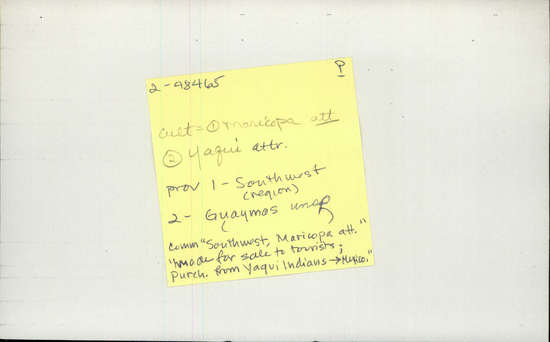 2-48465 P
cult = ① Maricopa att
② Yaqui attr.
prov 1 - Southwest
(region)
2 - Guaymas
( )
comm "Southwest, Maricopa att."
"made for sale to tourists;
purch. from Yaqui Indians → Mexico."